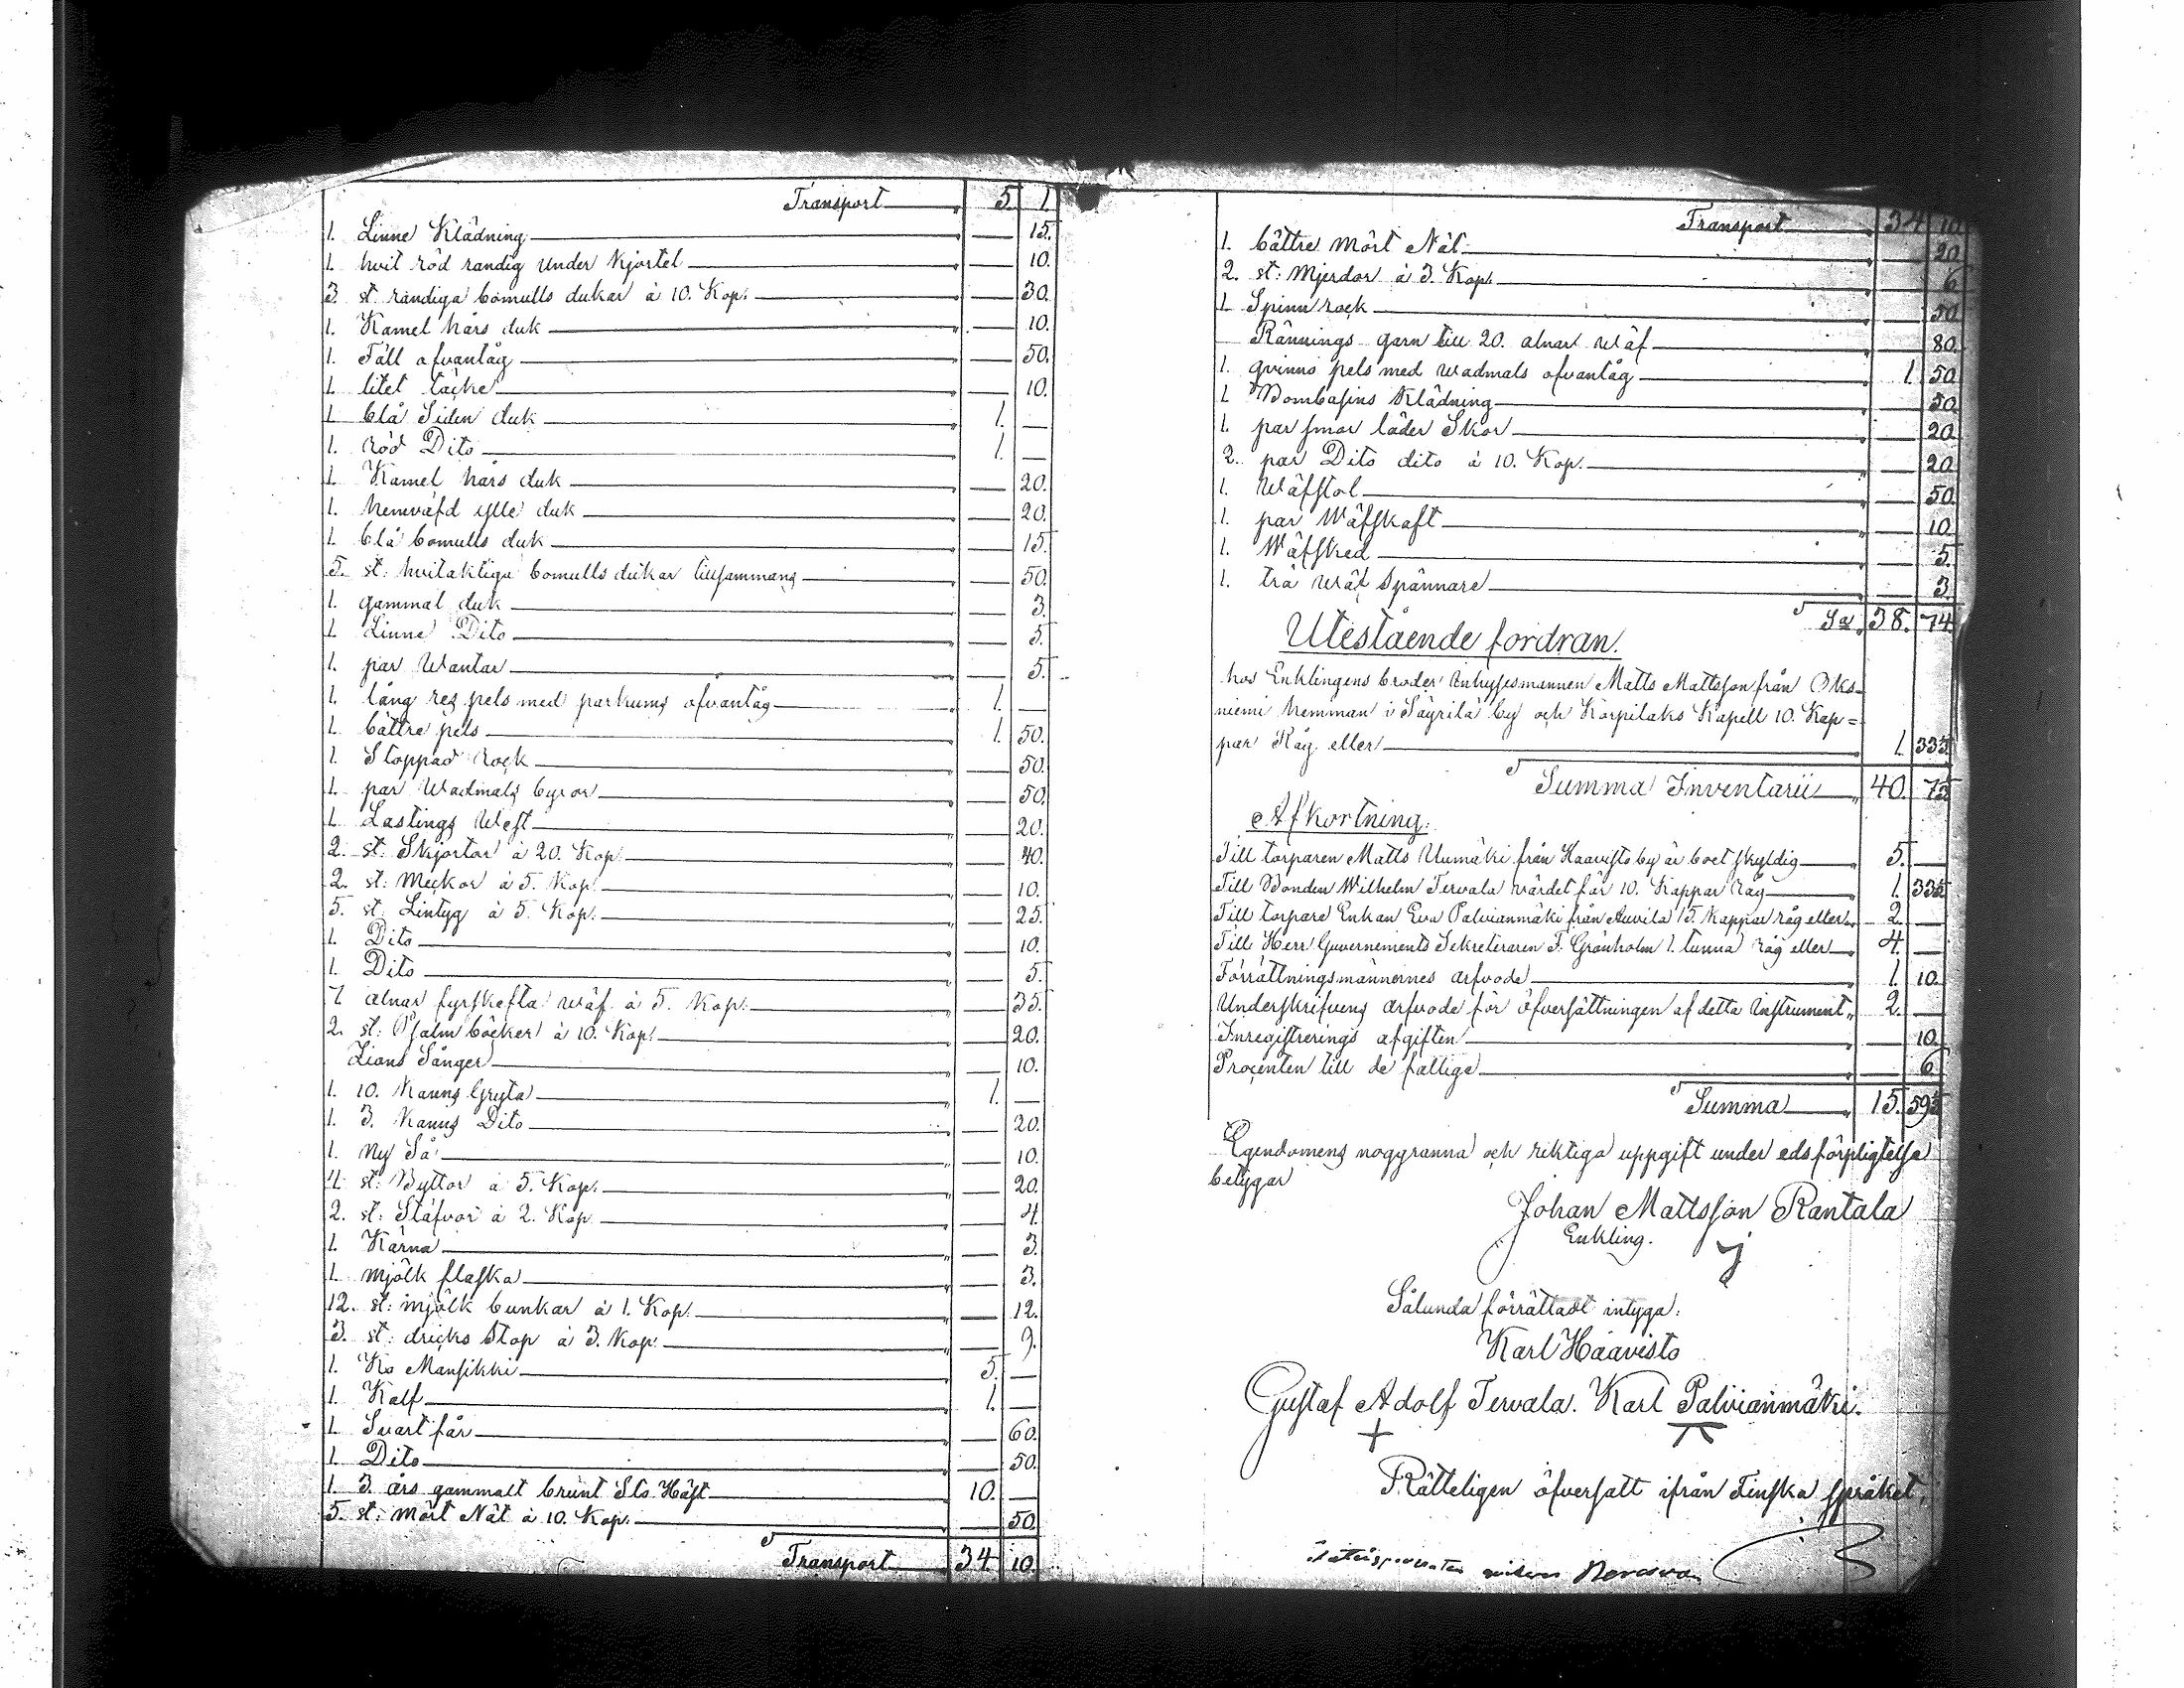 Transport 5. 1.
1. Linne Klädning — 15.
1. hvit röd randig under Kjortel — 10.
3 st. randiga bomulls dukar à 10. Kop. — 30.
1. Kamel hårs duk — 10.
1. Fäll ofvantåg — 50.
1. litet täcke — 10.
1. blå Siden duk 1. —
1. röd Dito 1. —
1. Kamel hårs duk — 20.
1. hemväfd ylle duk — 20.
1. blå bomulls duk — 15.
5. st: hvitaktiga bomulls dukar tillsammans — 50.
1. gammal duk — 3.
1. Linne Dito — 5.
1. par Wantar — 5.
1. lång res pels med parkums ofvantåg 1. —
1. bättre pels 1. 50.
1. Stoppad Rock — 50.
1. par Wadmals byxor — 50.
1. Lastings West — 20.
2. st: Skjortor à 20. Kop. — 40.
2. st: Meckor à 5. Kop. — 10.
5. st: Lintyg à 5. Kop. — 25.
1. Dito — 10.
1. Dito — 5.
7 alnar fyrskefta wäf à 5. Kop. — 35.
2. st: Psalm böcker à 10. Kop. — 20.
Zions Sånger — 10.
1. 10. Kanns Gryta 1. —
1. 3. Kanns Dito — 20.
1. ny Så — 10.
4 st: Byttor à 5. Kop. — 20.
2. st: Stäfvor à 2. Kop. — 4.
1. Kärna — 3.
1. mjölk flaska — 3.
12. st: mjölk bunkar à 1. Kop. — 12.
3. st: dricks Stop à 3. Kop. — 9.
1. Ko Mansikki 5. —
1. Kalf 1. —
1. Svart får — 60.
1. Dito — 50.
1. 3. års gammalt brunt Sto Häst 10. —
5. st: Mört Nät à 10. Kop. — 50.
Transport 34. 10.
Transport 34 10.
1. bättre Mört Nät — 20
2. st: Mjerdor à 3. Kop. — 6
1. Spinn rock — 50
Rännings garn till 20. alnar Wäf — 80.
1. qvinns pels med wadmals ofvantåg 1. 50
1. Bombasins Klädning — 50
1. par smor läder Skor — 20
2. par Dito dito à 10. Kop. — 20
1. Wäfstol — 50.
1. par Wäfskaft — 10.
1. Wäfsked — 5.
1. trä Wäf Spännare — 3.
Sa 38. 74
Utestående fordran.
hos Enklingens broder Inhysesmannen Matts Mattsson från Oks-
niemi hemman i Säyrilä by och Karpilaks Kapell 10. Kap=
par Råg eller 1. 33⅓
Summa Inventarii 40. 7⅓
Afkortning:
Till torparen Matts Uumäki från Haavisto by är boet skyldig 5. —
Till Bonden Wilhelm Tervala värdet för 10. Kappar råg 1. 33⅓
Till torpare Enkan Eva Palvianmäki från Auvila 15. Kappar råg eller 2. —
Till Herr Guvernements Sekreteraren F. Grönholm 1. tunna råg eller 4. —
Förrättningsmännernes arfvode 1. 10.
Underskrifvens arfvode för öfversättningen af detta Instrument 2. —
Inregistrerings afgiften — 10.
Procenten till de fattige — 6.
Summa 15. 59⅓
Egendomens noggranna och riktiga uppgift under edsförpligtelse
betygar
Johan Mattsson Rantala
Enkling.
Sålunda förrättadt intyga:
Karl Haavisto
Gustaf Adolf Tervala. Karl Palvianmäki.
Rätteligen öfversatt ifrån Finska språket,